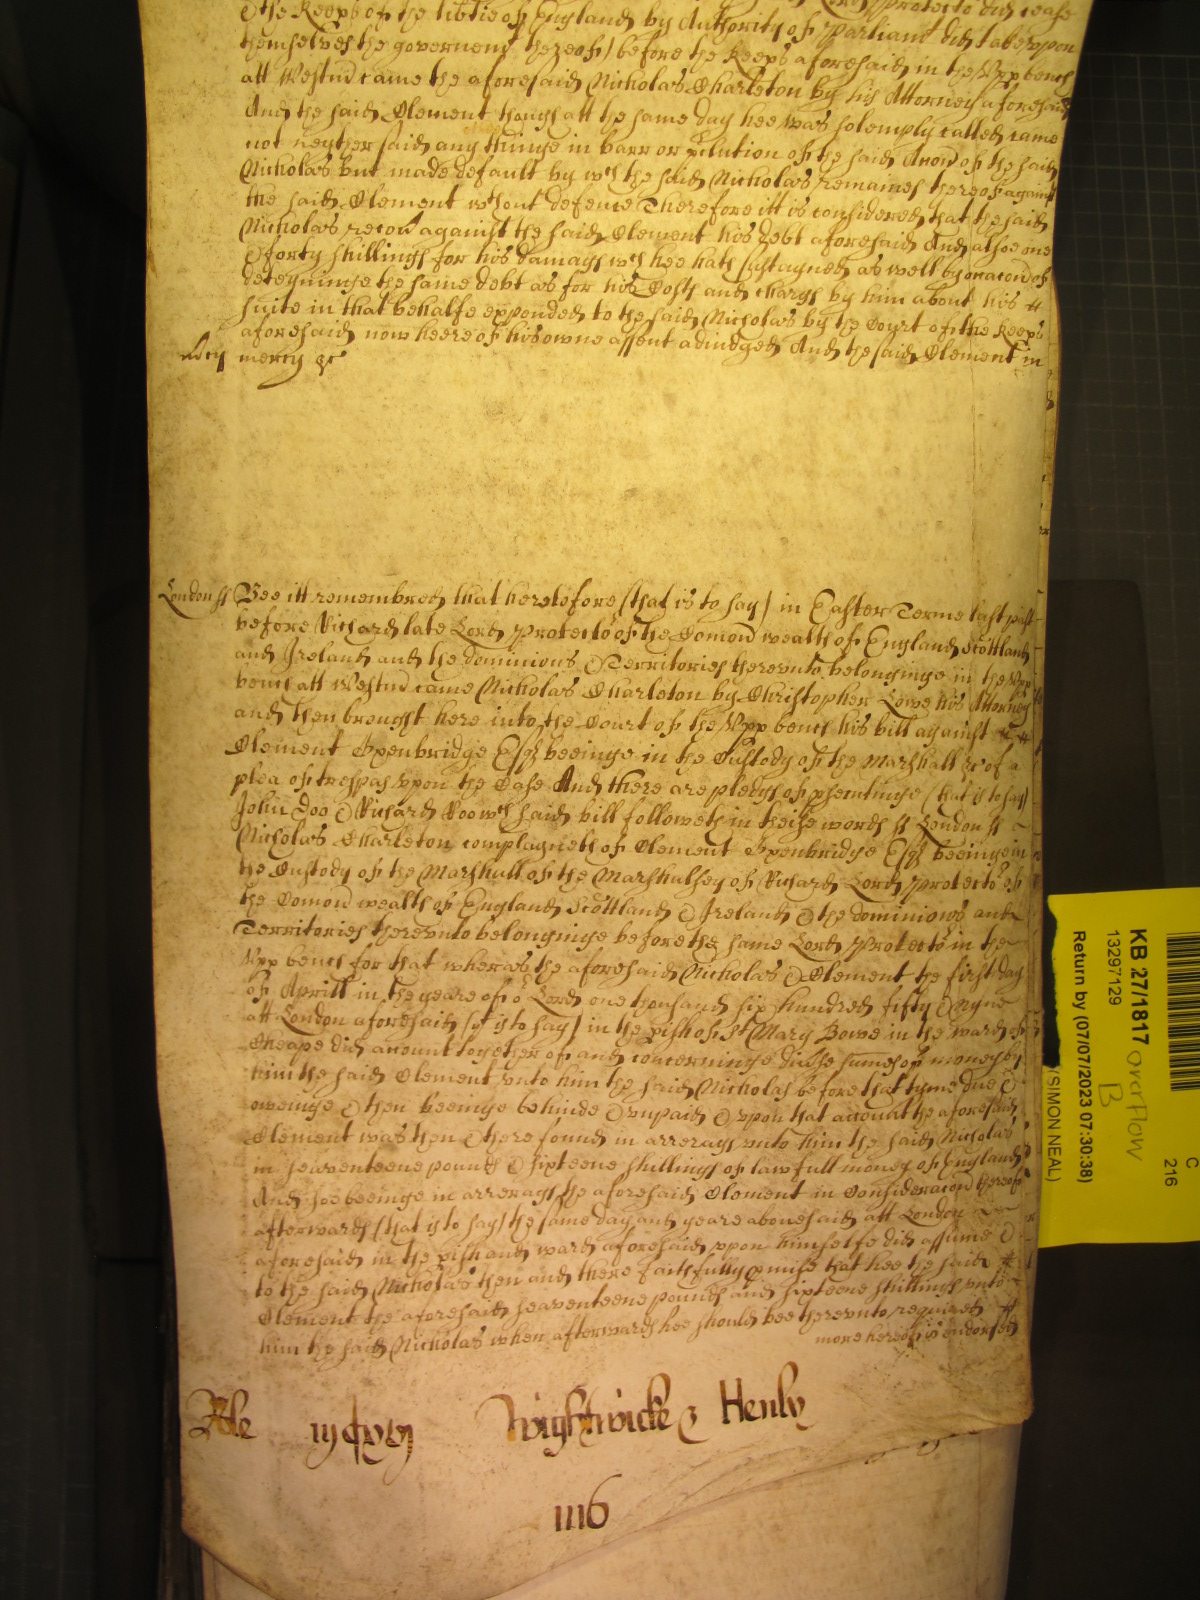 the Keeps of the libtie of England by Authority of Parliamt did take upon
themselves the governemt thereof) before the Keeps aforesaid in the Upp bench
att Westmr came the aforesaid Nicholas Charleton by his Attorney aforesaid
And the said Clement though att the same day hee was solemply called came
not neyther said any thinge in barr or pclution of the said Accon of the said
Nicholas but made default by wch the said Nicholas remaines thereof against
the said Clement wthout defence Therefore itt is considered that the said
Nicholas recov against the said Clement his debt aforesaid And alsoe
Forty shillings for his damags wch hee hath sustayned as well by reason of
deteyninge the same debt as for his Costs and chargs by him about his
suite in that behalfe expended to the said Nicholas by the Court of the Keeps
aforesaid now heere of his owne assent adiudged And the said Clement in
mercy &c
London ss Bee itt remembred that heretofore (that is to say) in Easter Terme last past
before Richard late Lord Protector of the Comon wealth of England Scottland
and Ireland and the dominions & Territories thereunto belonginge in the Upp
bench att Westmr came Nicholas Charleton by Christopher Lowe his Attorney
and then brought here into the Court of the Upp bench his bill against
Clement Oxenbridge Esqr beeinge in the Custody of the Marshall &c of a
plea of trespas upon the Case And there are pledgs of psecutinge (that is to say)
John Doo & Richard Roo wch said bill followeth in theise words ss London ss
Nicholas Charleton complayneth of Clement Oxenbridge Esqr beeinge in
the Custody of the Marshall of the Marshalsey of Richard Lord Protector of
the Comon wealth of England Scottland & Ireland & the dominions and
Territories thereunto belonginge before the same Lord Protector in the
Upp bench for that wheras the aforesaid Nicholas & Clement the first day
of Aprill in the yeare of or Lord one thousand six hundred fifty & nyne
att London aforesaid (yt is to say) in the pish of St Mary Bowe in the ward of
Cheape did account together of and concerninge divse sumes of money by
him the said Clement unto him the said Nicholas before that tyme due &
oweinge & then beeinge behinde & unpaid & upon that account the aforesaid
Clement was then & there found in arrerags unto him the said Nicholas
in seaventeene pounds & sixteene shillings of lawfull money of England
And soe beeinge in arrerags the aforesaid Clement in Consideracon thereof
afterwards (that is to say) the same day and yeare abovesaid att London
aforesaid in the pish and ward aforesaid upon himselfe did assume &
to the said Nicholas then and there faithfully pmise that hee the said
Clement the aforesaid seaventeene pounds and sixteene shillings unto
him the said Nicholas when afterwards hee should bee thereunto required
more hereof is endorsed
Wightwicke & Henly
1116
KB 27/1817 overflow
B
13297129
Return by (07/07/2023 07:30:38)
(SIMON NEAL)
C
216